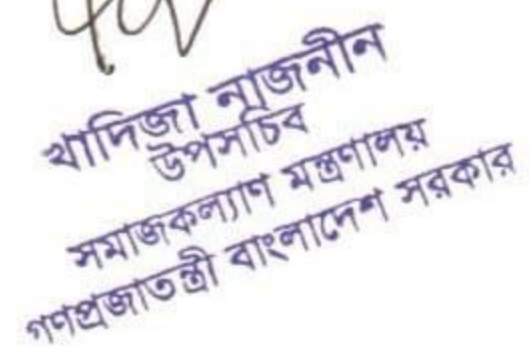 খাদিজা নাজনীন
উপসচিব
সমাজকল্যাণ মন্ত্রণালয়
গণপ্রজাতন্ত্রী বাংলাদেশ সরকার